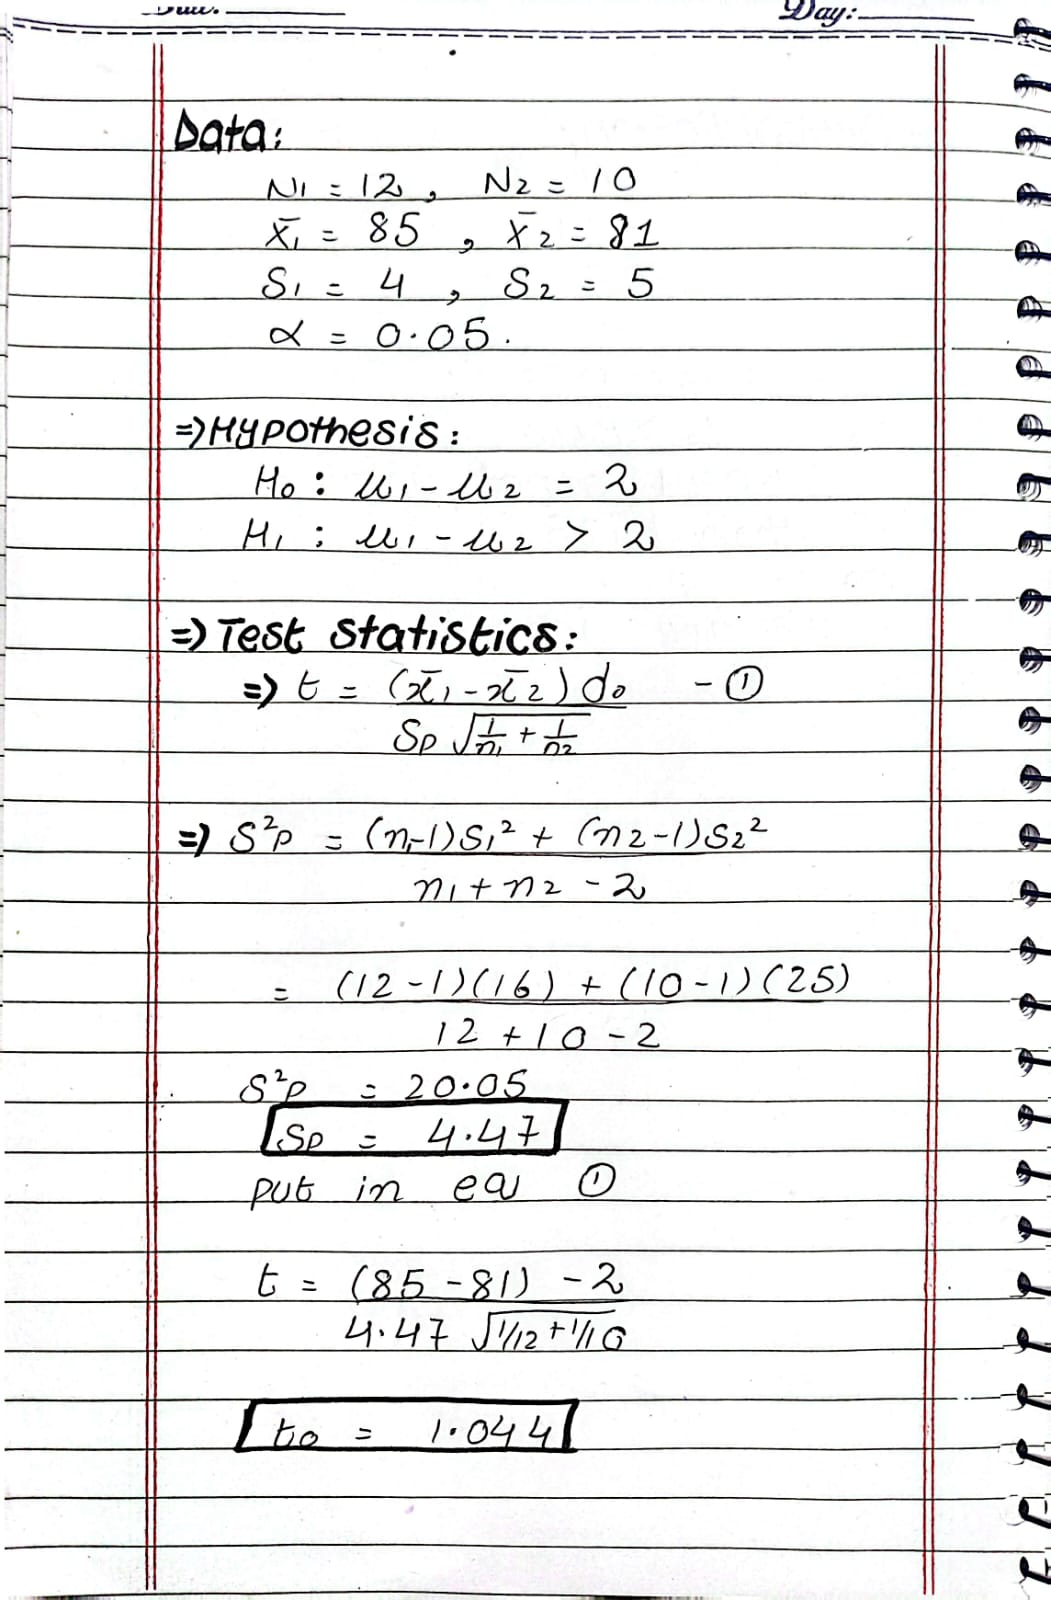 Day:
Data:
N1 = 12, N2 = 10
x̄1 = 85, x̄2 = 81
S1 = 4, S2 = 5
α = 0.05.
=> Hypothesis:
H0 : μ1 - μ2 = 2
H1 : μ1 - μ2 > 2
=> Test Statistics:
=> t = (x̄1 - x̄2) do - ①
Sp √1/n1 + 1/n2
=> S²p = (n1-1)S1² + (n2-1)S2²
n1 + n2 - 2
= (12-1)(16) + (10-1)(25)
12 + 10 - 2
S²p = 20.05
Sp = 4.47
put in eq ①
t = (85-81) - 2
4.47 √1/12 + 1/10
to = 1.044